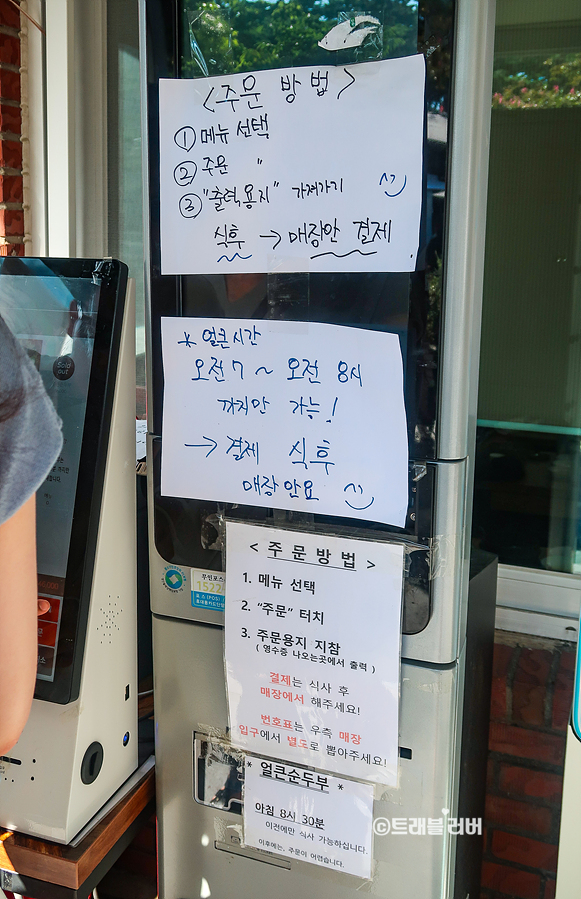 <주문 방법>
① 메뉴 선택
② 주문 "
③ "출력용지" 가져가기 ^^
식후 → 매장안 결제
* 얼큰시간
오전7 ~ 오전 8시
까지만 가능!
→ 결제 식후
매장안요
Sold
out
무인포스
1522
< 주문방법 >
1. 메뉴 선택
2. "주문" 터치
3. 주문용지 지참
( 영수증 나오는곳에서 출력 )
결제는 식사 후
매장에서 해주세요!
번호표는 우측 매장
입구에서 별도로 뽑아주세요!
* 얼큰순두부 *
아침 8시 30분
이전에만 식사 가능하십니다.
이후에는, 주문이 어렵습니다.
©트래블러버